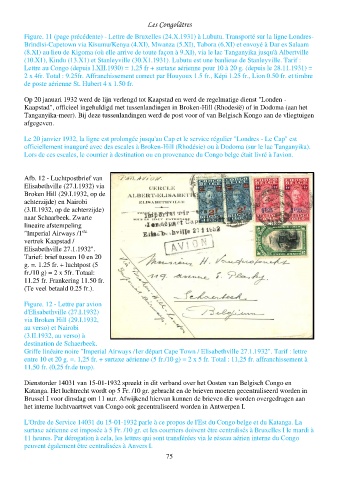 Les Congolâtres
Figure. 11 (page précédente) - Lettre de Bruxelles (24.X.1931) à Lubutu. Transporté sur la ligne Londres-
Brindisi-Capetown via Kisumu/Kenya (4.XI), Mwanza (5.XI), Tabora (6.XI) et envoyé à Dar es Salaam
(8.XI) au lieu de Kigoma (où elle arrive de toute façon à 9.XI), via le lac Tanganyika jusqu'à Albertville
(10.XI), Kindu (13.XI) et Stanleyville (30.XI.1931). Lubutu est une banlieue de Stanleyville. Tarif :
Lettre au Congo (depuis 1.XII.1930) = 1,25 fr + surtaxe aérienne pour 10 à 20 g. (depuis le 28.11.1931) =
2 x 4fr. Total : 9.25fr. Affranchissement correct par Houyoux 1.5 fr., Képi 1.25 fr., Lion 0.50 fr. et timbre
de poste aérienne St. Hubert 4 x 1.50 fr.
Op 20 januari 1932 werd de lijn verlengd tot Kaapstad en werd de regelmatige dienst "Londen -
Kaapstad", officieel ingehuldigd met tussenlandingen in Broken-Hill (Rhodesië) of in Dodoma (aan het
Tanganyika-meer). Bij deze tussenlandingen werd de post voor of van Belgisch Kongo aan de vliegtuigen
afgegeven.
Le 20 janvier 1932, la ligne est prolongée jusqu'au Cap et le service régulier "Londres - Le Cap" est
officiellement inauguré avec des escales à Broken-Hill (Rhodésie) ou à Dodoma (sur le lac Tanganyika).
Lors de ces escales, le courrier à destination ou en provenance du Congo belge était livré à l'avion.
Afb. 12 - Luchtpostbrief van
Elisabethville (27.I.1932) via
Broken Hill (29.I.1932, op de
achterzijde) en Nairobi
(3.II.1932, op de achterzijde)
naar Schaarbeek. Zwarte
lineaire afstempeling
"Imperial Airways /1ste
vertrek Kaapstad /
Elisabethville 27.1.1932".
Tarief: brief tussen 10 en 20
g. = 1.25 fr. + luchtpost (5
fr./10 g) = 2 x 5fr. Totaal:
11.25 fr. Frankering 11.50 fr.
(Te veel betaald 0.25 fr.).
Figure. 12 - Lettre par avion
d'Elisabethville (27.I.1932)
via Broken Hill (29.I.1932,
au verso) et Nairobi
(3.II.1932, au verso) à
destination de Schaerbeek.
Griffe linéaire noire "Imperial Airways / 1er départ Cape Town / Elisabethville 27.1.1932". Tarif : lettre
entre 10 et 20 g. = 1.25 fr. + surtaxe aérienne (5 fr./10 g) = 2 x 5 fr. Total : 11,25 fr. affranchissement à
11,50 fr. (0,25 fr.de trop).
GUERTEE
ALBERT-ELISABETH
ELISABETHVILLE
Imperial Airways
Elisabethville 27 1 1932
(AVION)
Monsieur H. Vandenprouck
Schaerbeek
Belgium
Dienstorder 14031 van 15-01-1932 spreekt in dit verband over het Oosten van Belgisch Congo en
Katanga. Het luchtrecht wordt op 5 Fr. /10 gr. gebracht en de brieven moeten gecentraliseerd worden in
Brussel 1 voor dinsdag om 11 uur. Afwijkend hiervan kunnen de brieven die worden overgedragen aan
het interne luchtvaartnet van Congo ook gecentraliseerd worden in Antwerpen I.
L'Ordre de Service 14031 du 15-01-1932 parle à ce propos de l'Est du Congo belge et du Katanga. La
surtaxe aérienne est imposée à 5 Fr. /10 gr. et les courriers doivent être centralisés à Bruxelles I le mardi à
11 heures. Par dérogation à cela, les lettres qui sont transférées via le réseau aérien interne du Congo
peuvent également être centralisées à Anvers I.
75